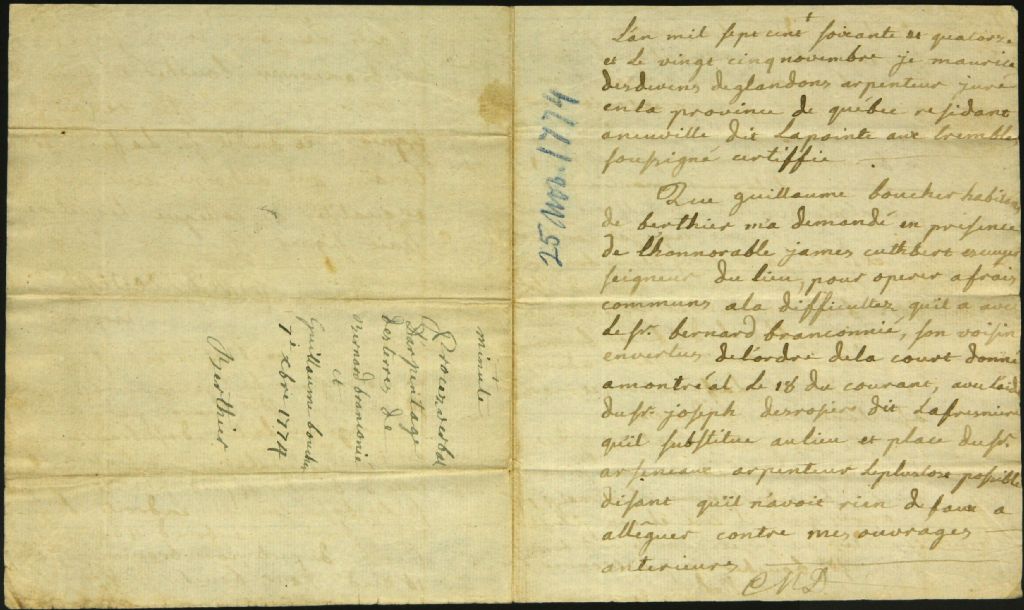 minute
Procez verbal
Darpentage
des terres de
Bernard branconié
et
Guillaume boucher
1e xbre 1774
Berthier
25 Nov. 1774
Lan mil sept cent soixante et quatorze
et Le vingt cinq novembre je maurice
desdevens deglandons arpenteur juré
en la province de québec residant
aneuville dit Lapointe aux trembles
soussigné certiffie
Que guillaume boucher habitant
de berthier m'a demandé en presence
de l'honnorable james cuthbert ecuyer
seigneur du lieu, pour operer a frais
communs a la difficultez qu'il a avec
Le sr. bernard branconnié, son voisin
envertus de l'ordre de la court donné
amontréal Le 18 du courant, avec l'aide
du sr. joseph desrosiers dit Lafresniere
qu'il substitue au lieu et place du sr.
arseneaux arpenteur Le plustost possible
disant qu'il n'avoit rien de faux a
alléguer contre mes ouvrages
anterieures
CMD